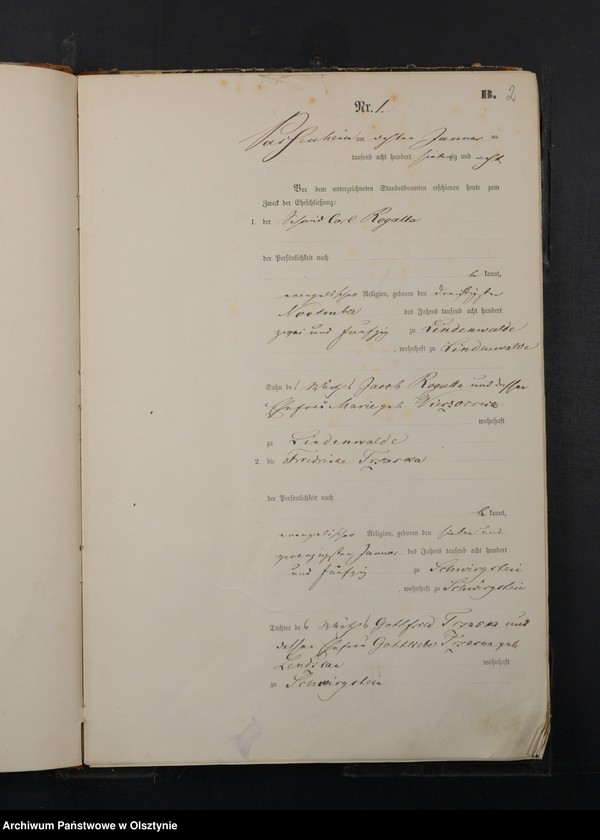 B. 2
Nr. 1.
Passenheim am achten Januar
tausend acht hundert siebenzig und acht
Vor dem unterzeichneten Standesbeamten erschienen heute zum
Zweck der Eheschließung:
1. der Carl Rogalla
der Persönlichkeit nach
be kannt,
evangelischer Religion, geboren den dreißigsten
November des Jahres tausend acht hundert
zwei und fünfzig zu Lindenwalde
, wohnhaft zu Lindenwalde
Sohn des Wirths Jacob Rogalla und dessen
Ehefrau Marie geb.
wohnhaft
zu Lindenwalde
2. die Friedricke Trzaska
der Persönlichkeit nach
be kannt,
evangelischer Religion, geboren den sieben und
zwanzigsten Januar des Jahres tausend acht hundert
und fünfzig zu Schwirgstein
, wohnhaft zu Schwirgstein
Tochter des Wirths Gottfried Trzaska und
dessen Ehefrau Gottliebe Trzaska geb.
wohnhaft
zu Schwirgstein
Archiwum Państwowe w Olsztynie